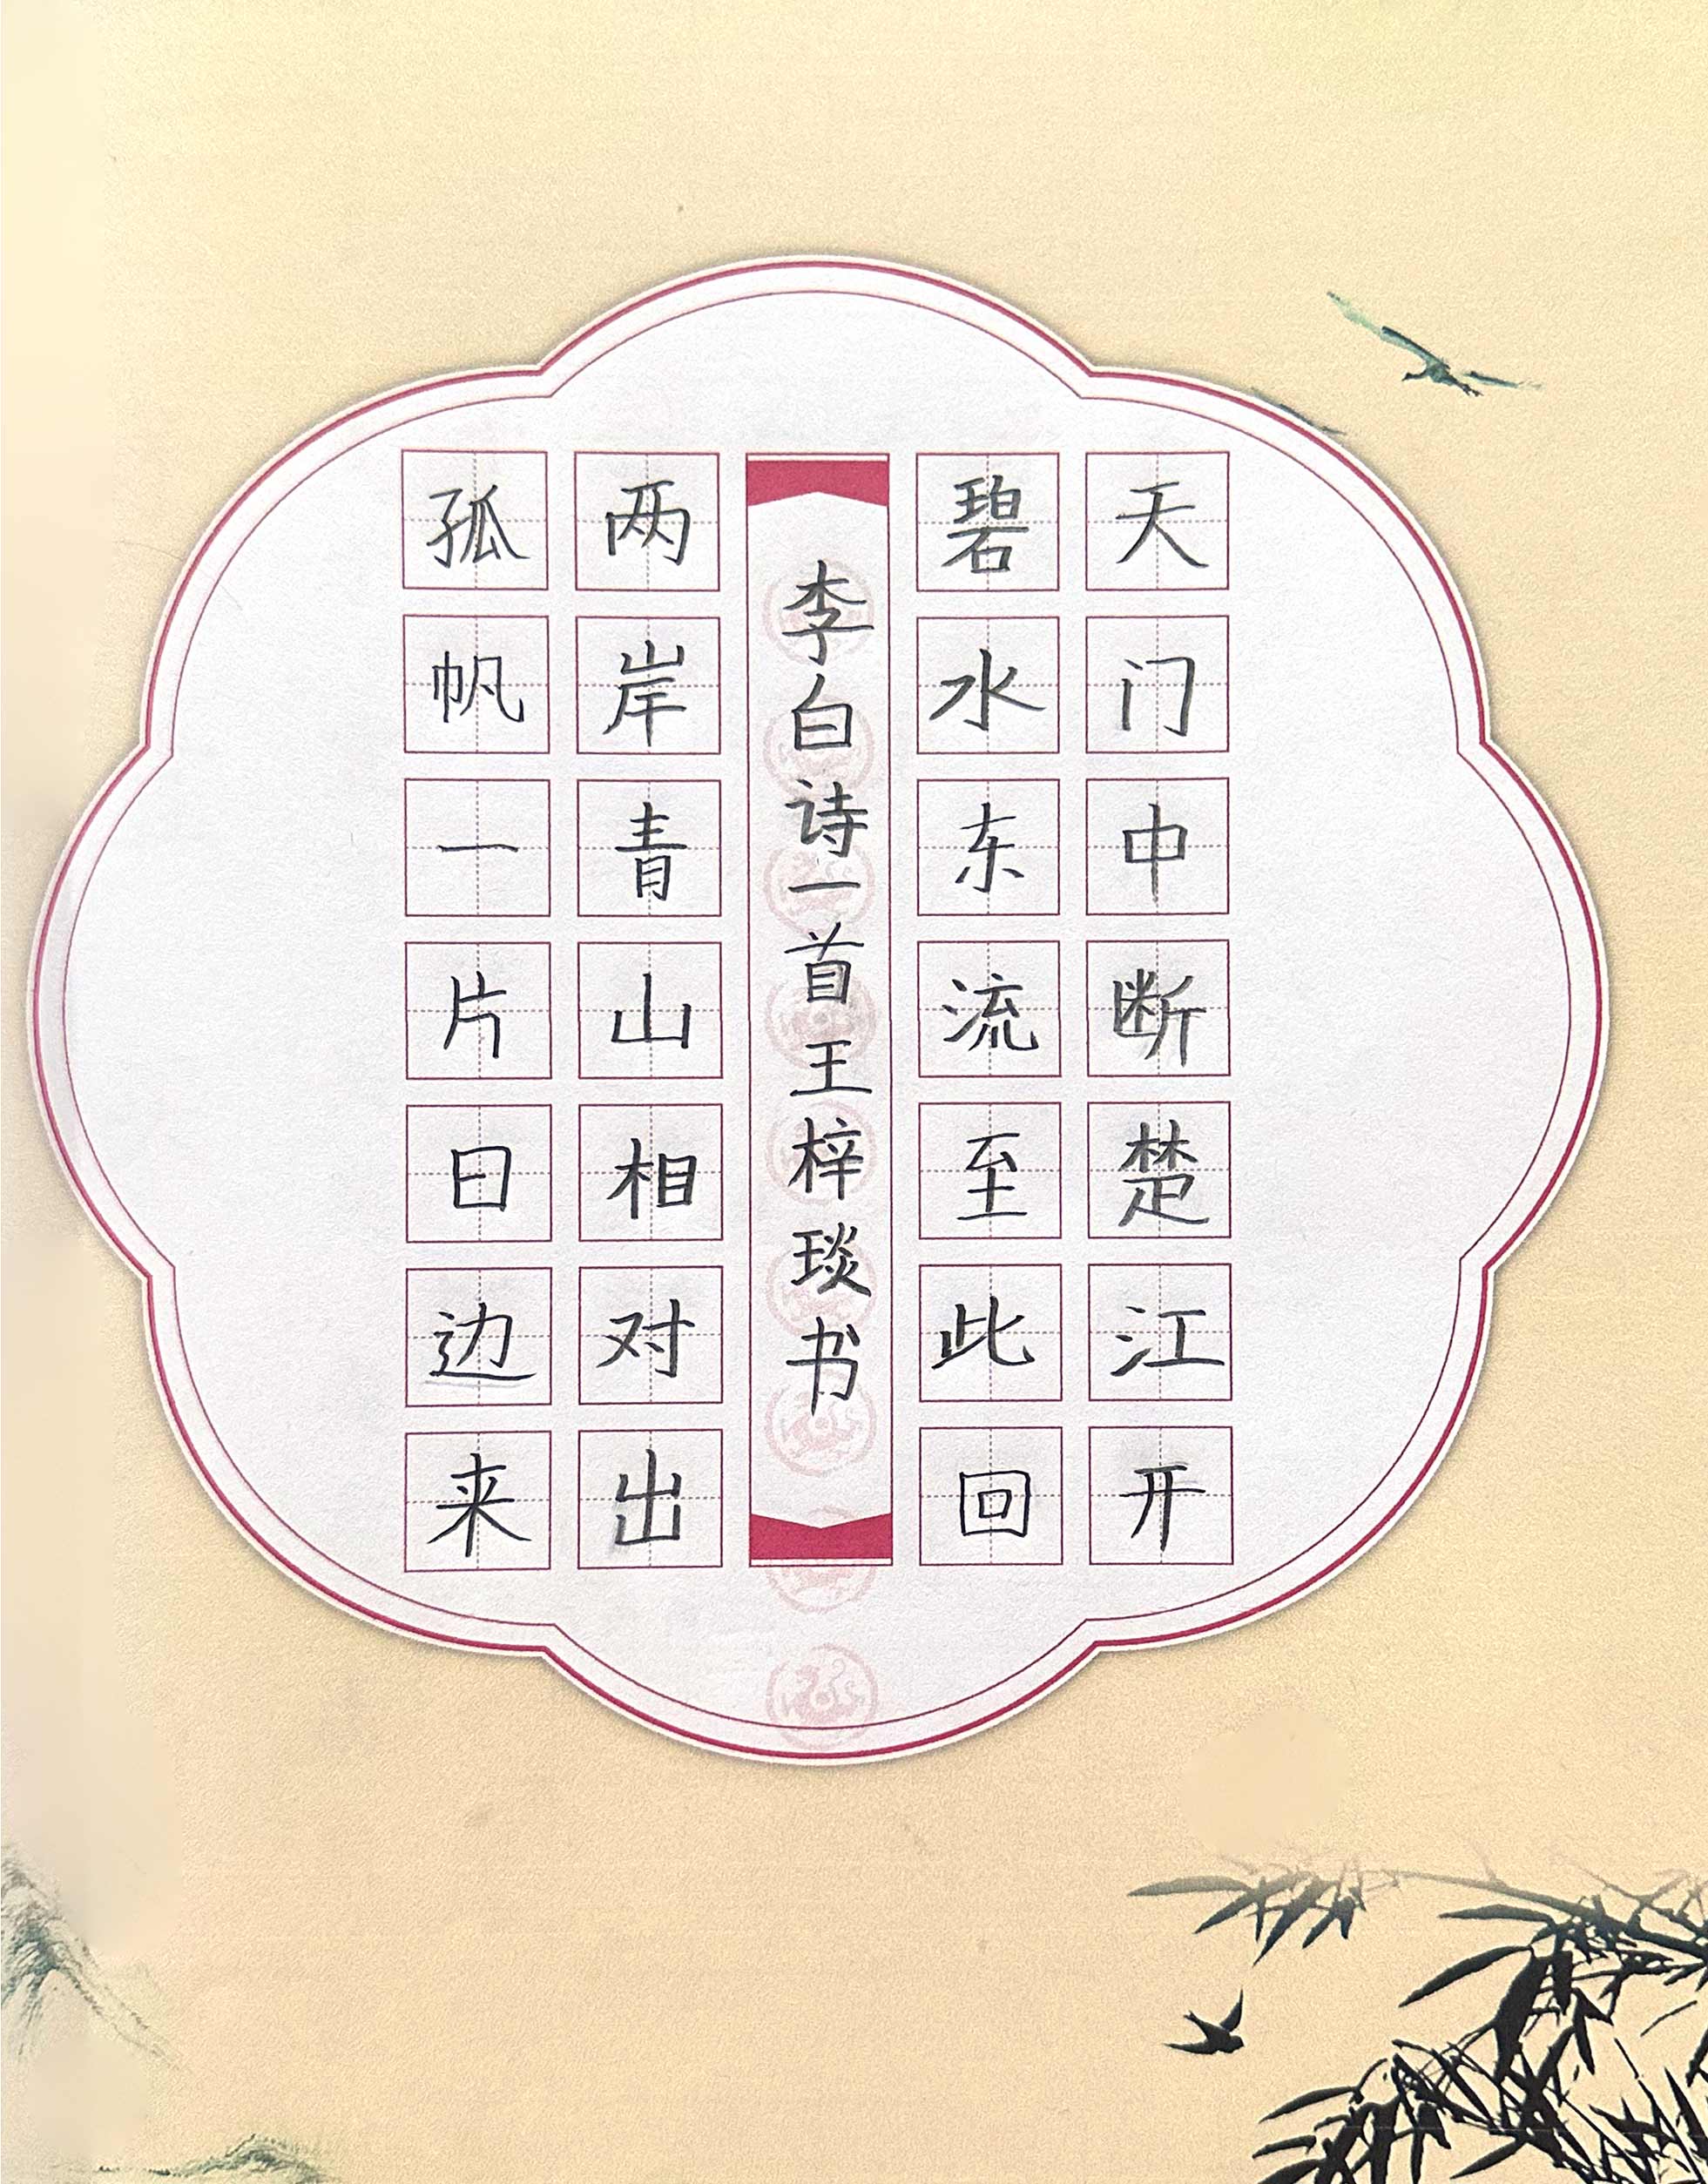 天门中断楚江开
碧水东流至此回
李白诗一首王梓琰书
两岸青山相对出
孤帆一片日边来